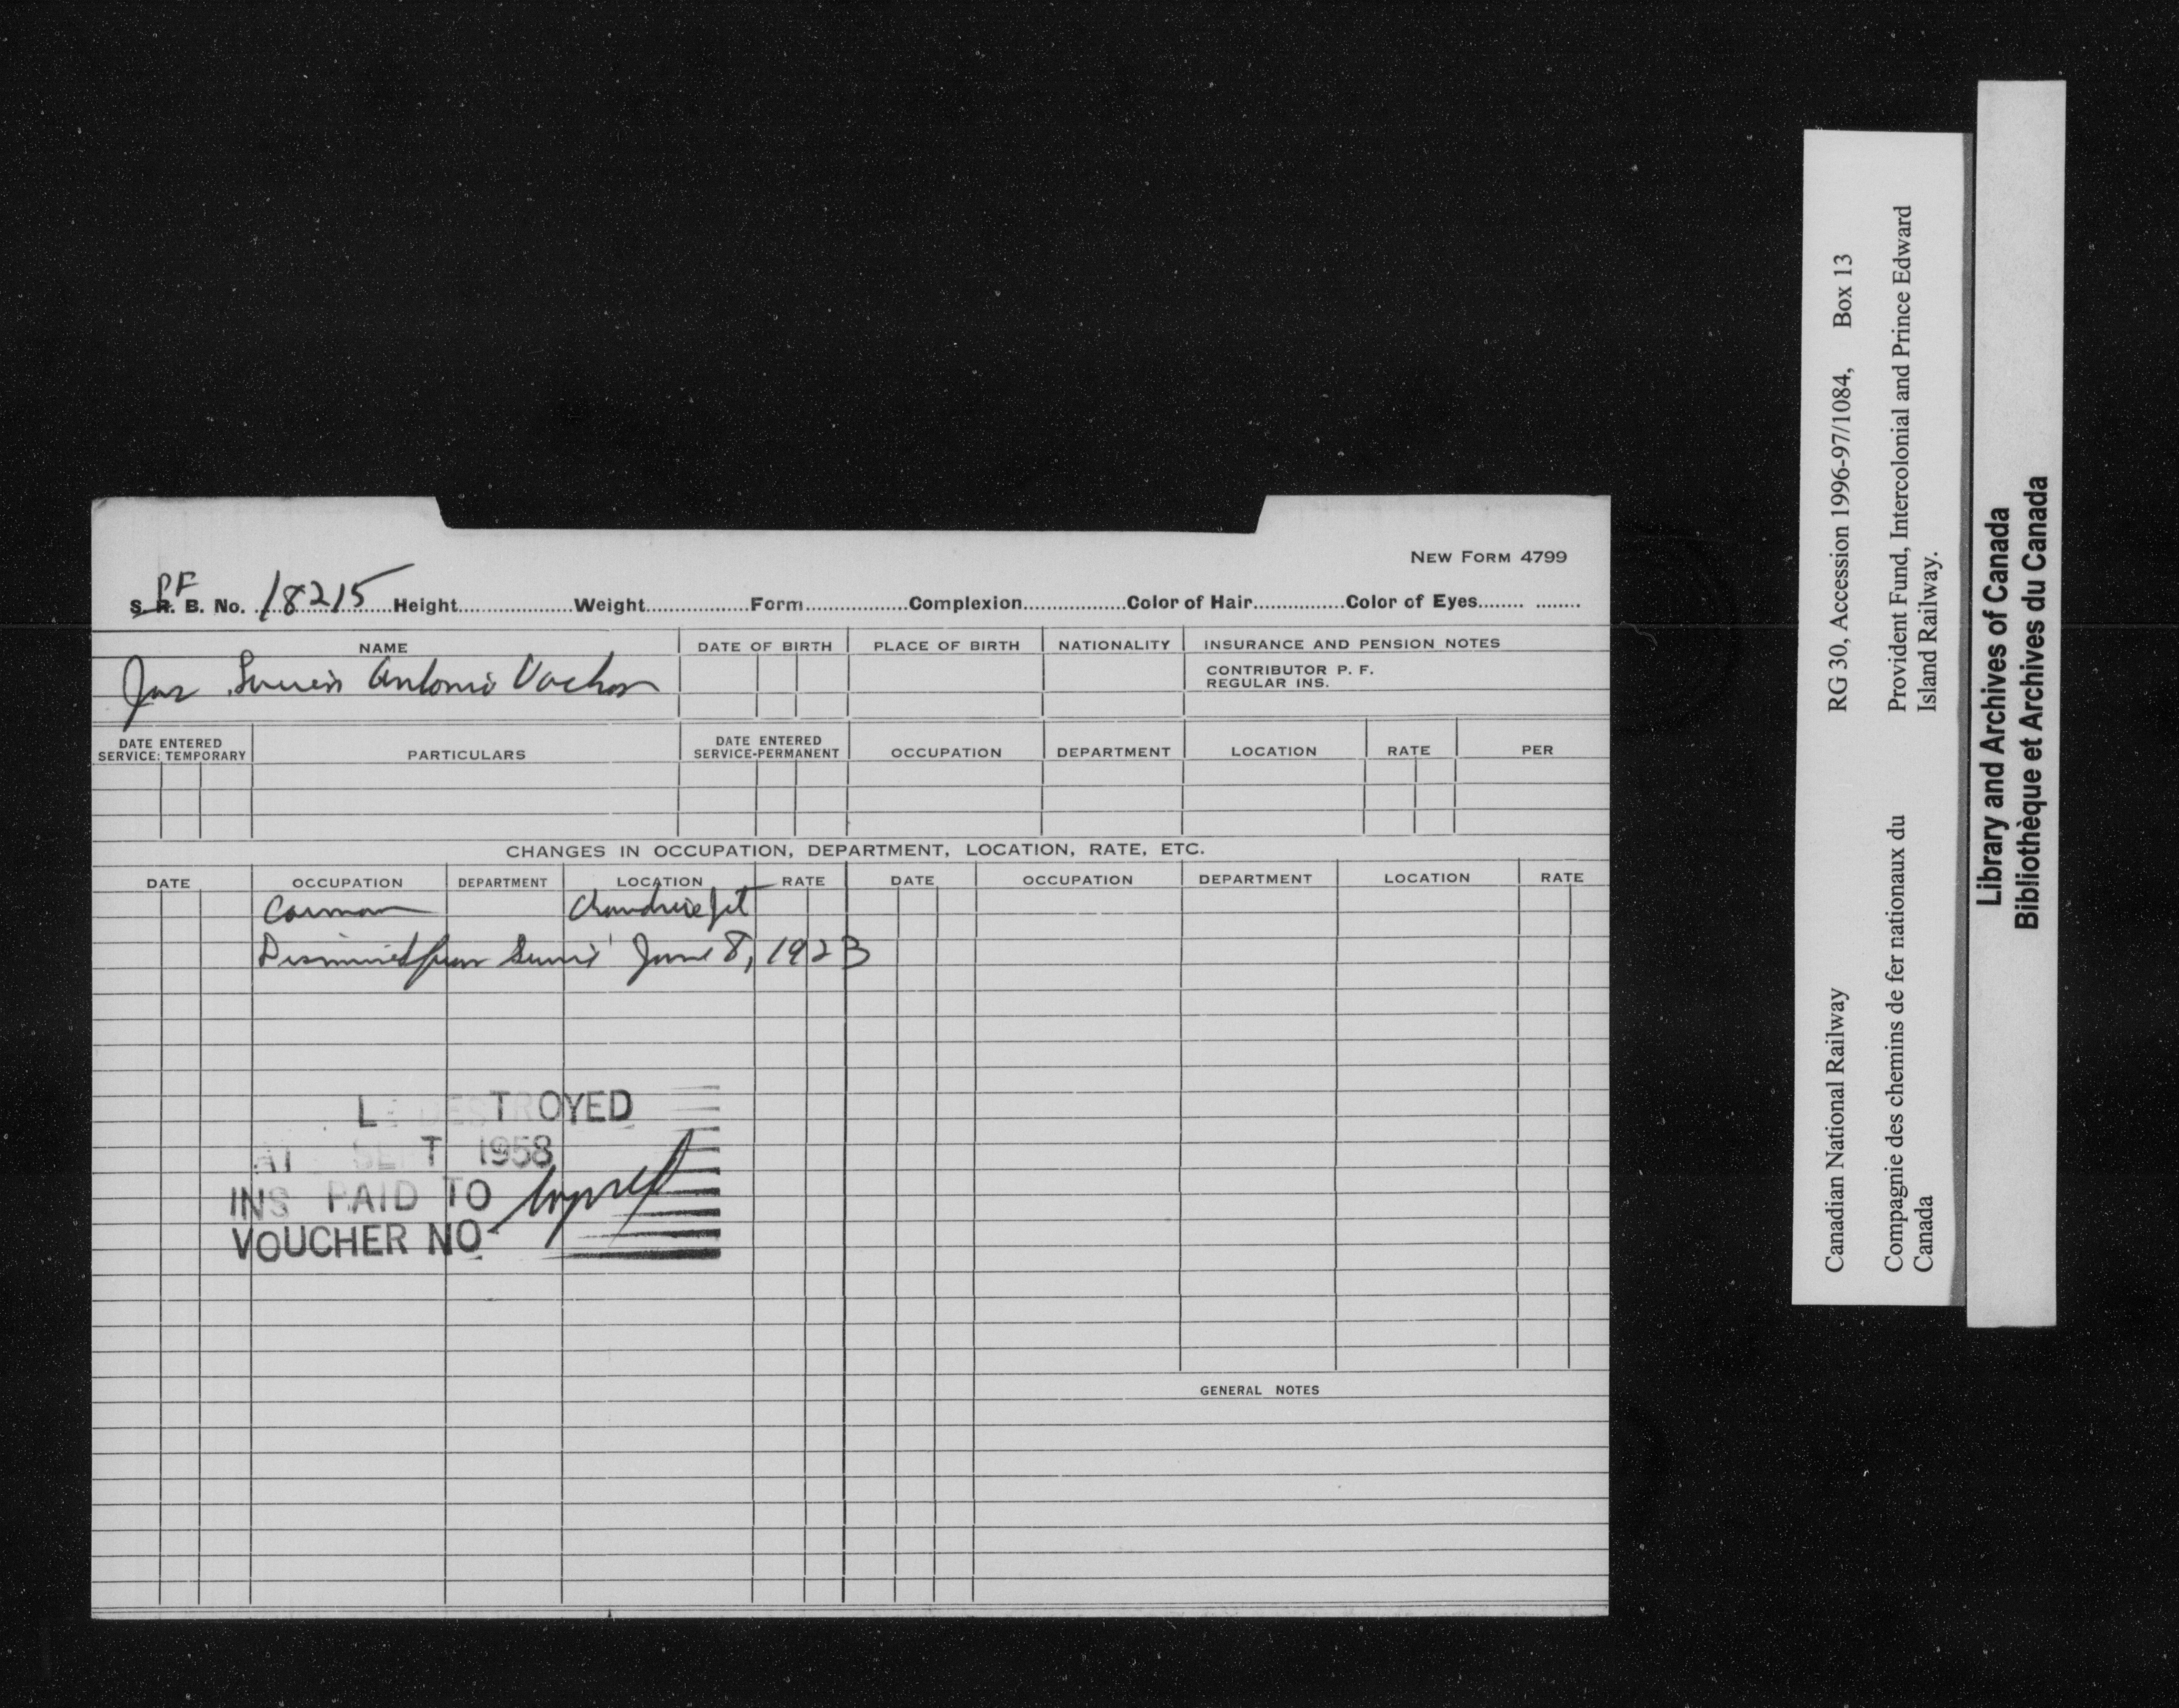 NEW FORM 4799
PF
S. R. B. No. 18215 Height Weight Form Complexion Color of Hair Color of Eyes
NAME DATE OF BIRTH PLACE OF BIRTH NATIONALITY INSURANCE AND PENSION NOTES
Antonio Vachon
CONTRIBUTOR P. F.
REGULAR INS.
DATE ENTERED SERVICE: TEMPORARY PARTICULARS DATE ENTERED SERVICE-PERMANENT OCCUPATION DEPARTMENT LOCATION RATE PER
CHANGES IN OCCUPATION, DEPARTMENT, LOCATION, RATE, ETC.
DATE OCCUPATION DEPARTMENT LOCATION RATE DATE OCCUPATION DEPARTMENT LOCATION RATE
Carman Chaudiere Jct
Dismissed from Service June 8, 1923
DESTROYED
SEPT 1958
INS PAID TO
VOUCHER NO
GENERAL NOTES
Canadian National Railway RG 30, Accession 1996-97/1084, Box 13
Compagnie des chemins de fer nationaux du Provident Fund, Intercolonial and Prince Edward
Canada Island Railway.
Library and Archives of Canada
Bibliothèque et Archives du Canada